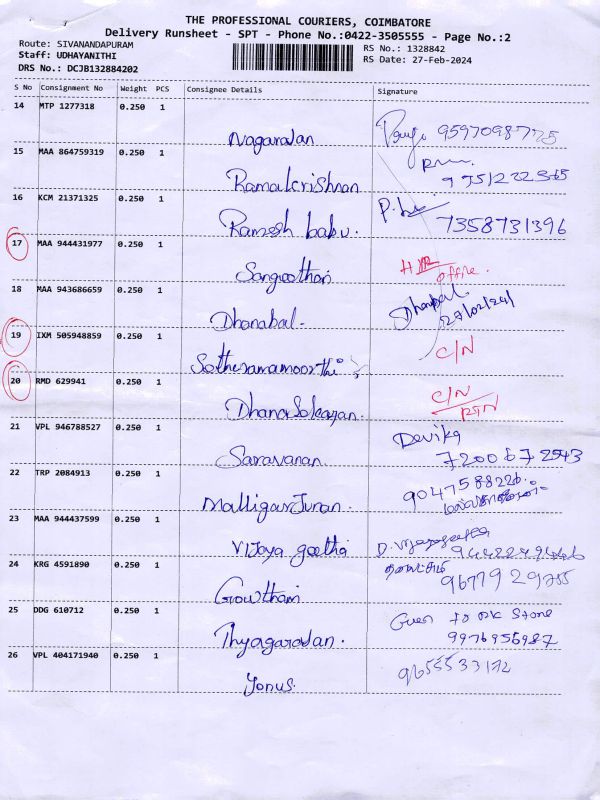 THE PROFESSIONAL COURIERS, COIMBATORE
Delivery Runsheet - SPT - Phone No.:0422-3505555 - Page No.:2
Route: SIVANANDAPURAM
RS No.: 1328842
Staff: UDHAYANITHI
RS Date: 27-Feb-2024
DRS No.: DCJB132884202
S No Consignment No Weight PCS Consignee Details Signature
14 MTP 1277318 0.250 1
Nagarajan 9597098775
15 MAA 864759319 0.250 1
Ramakrishnan
16 KCM 21371325 0.250 1
Ramesh babu. 7358731396
17 MAA 944431977 0.250 1
office.
18 MAA 943686659 0.250 1
Dhanabal. Dhanabal.
27/02/24
19 IXM 505948859 0.250 1
C/N
20 RMD 629941 0.250 1
C/N
RTN
21 VPL 946788527 0.250 1
Devika
Saravanan. 7200672543
22 TRP 2084913 0.250 1
9047588226
MalligarJunan.
23 MAA 944437599 0.250 1
Vijaya geetha
24 KRG 4591890 0.250 1
Gowtham
25 DDG 610712 0.250 1
Stone
Thyagarajan. 9976956987
26 VPL 404171940 0.250 1
9655533172
Yonus.